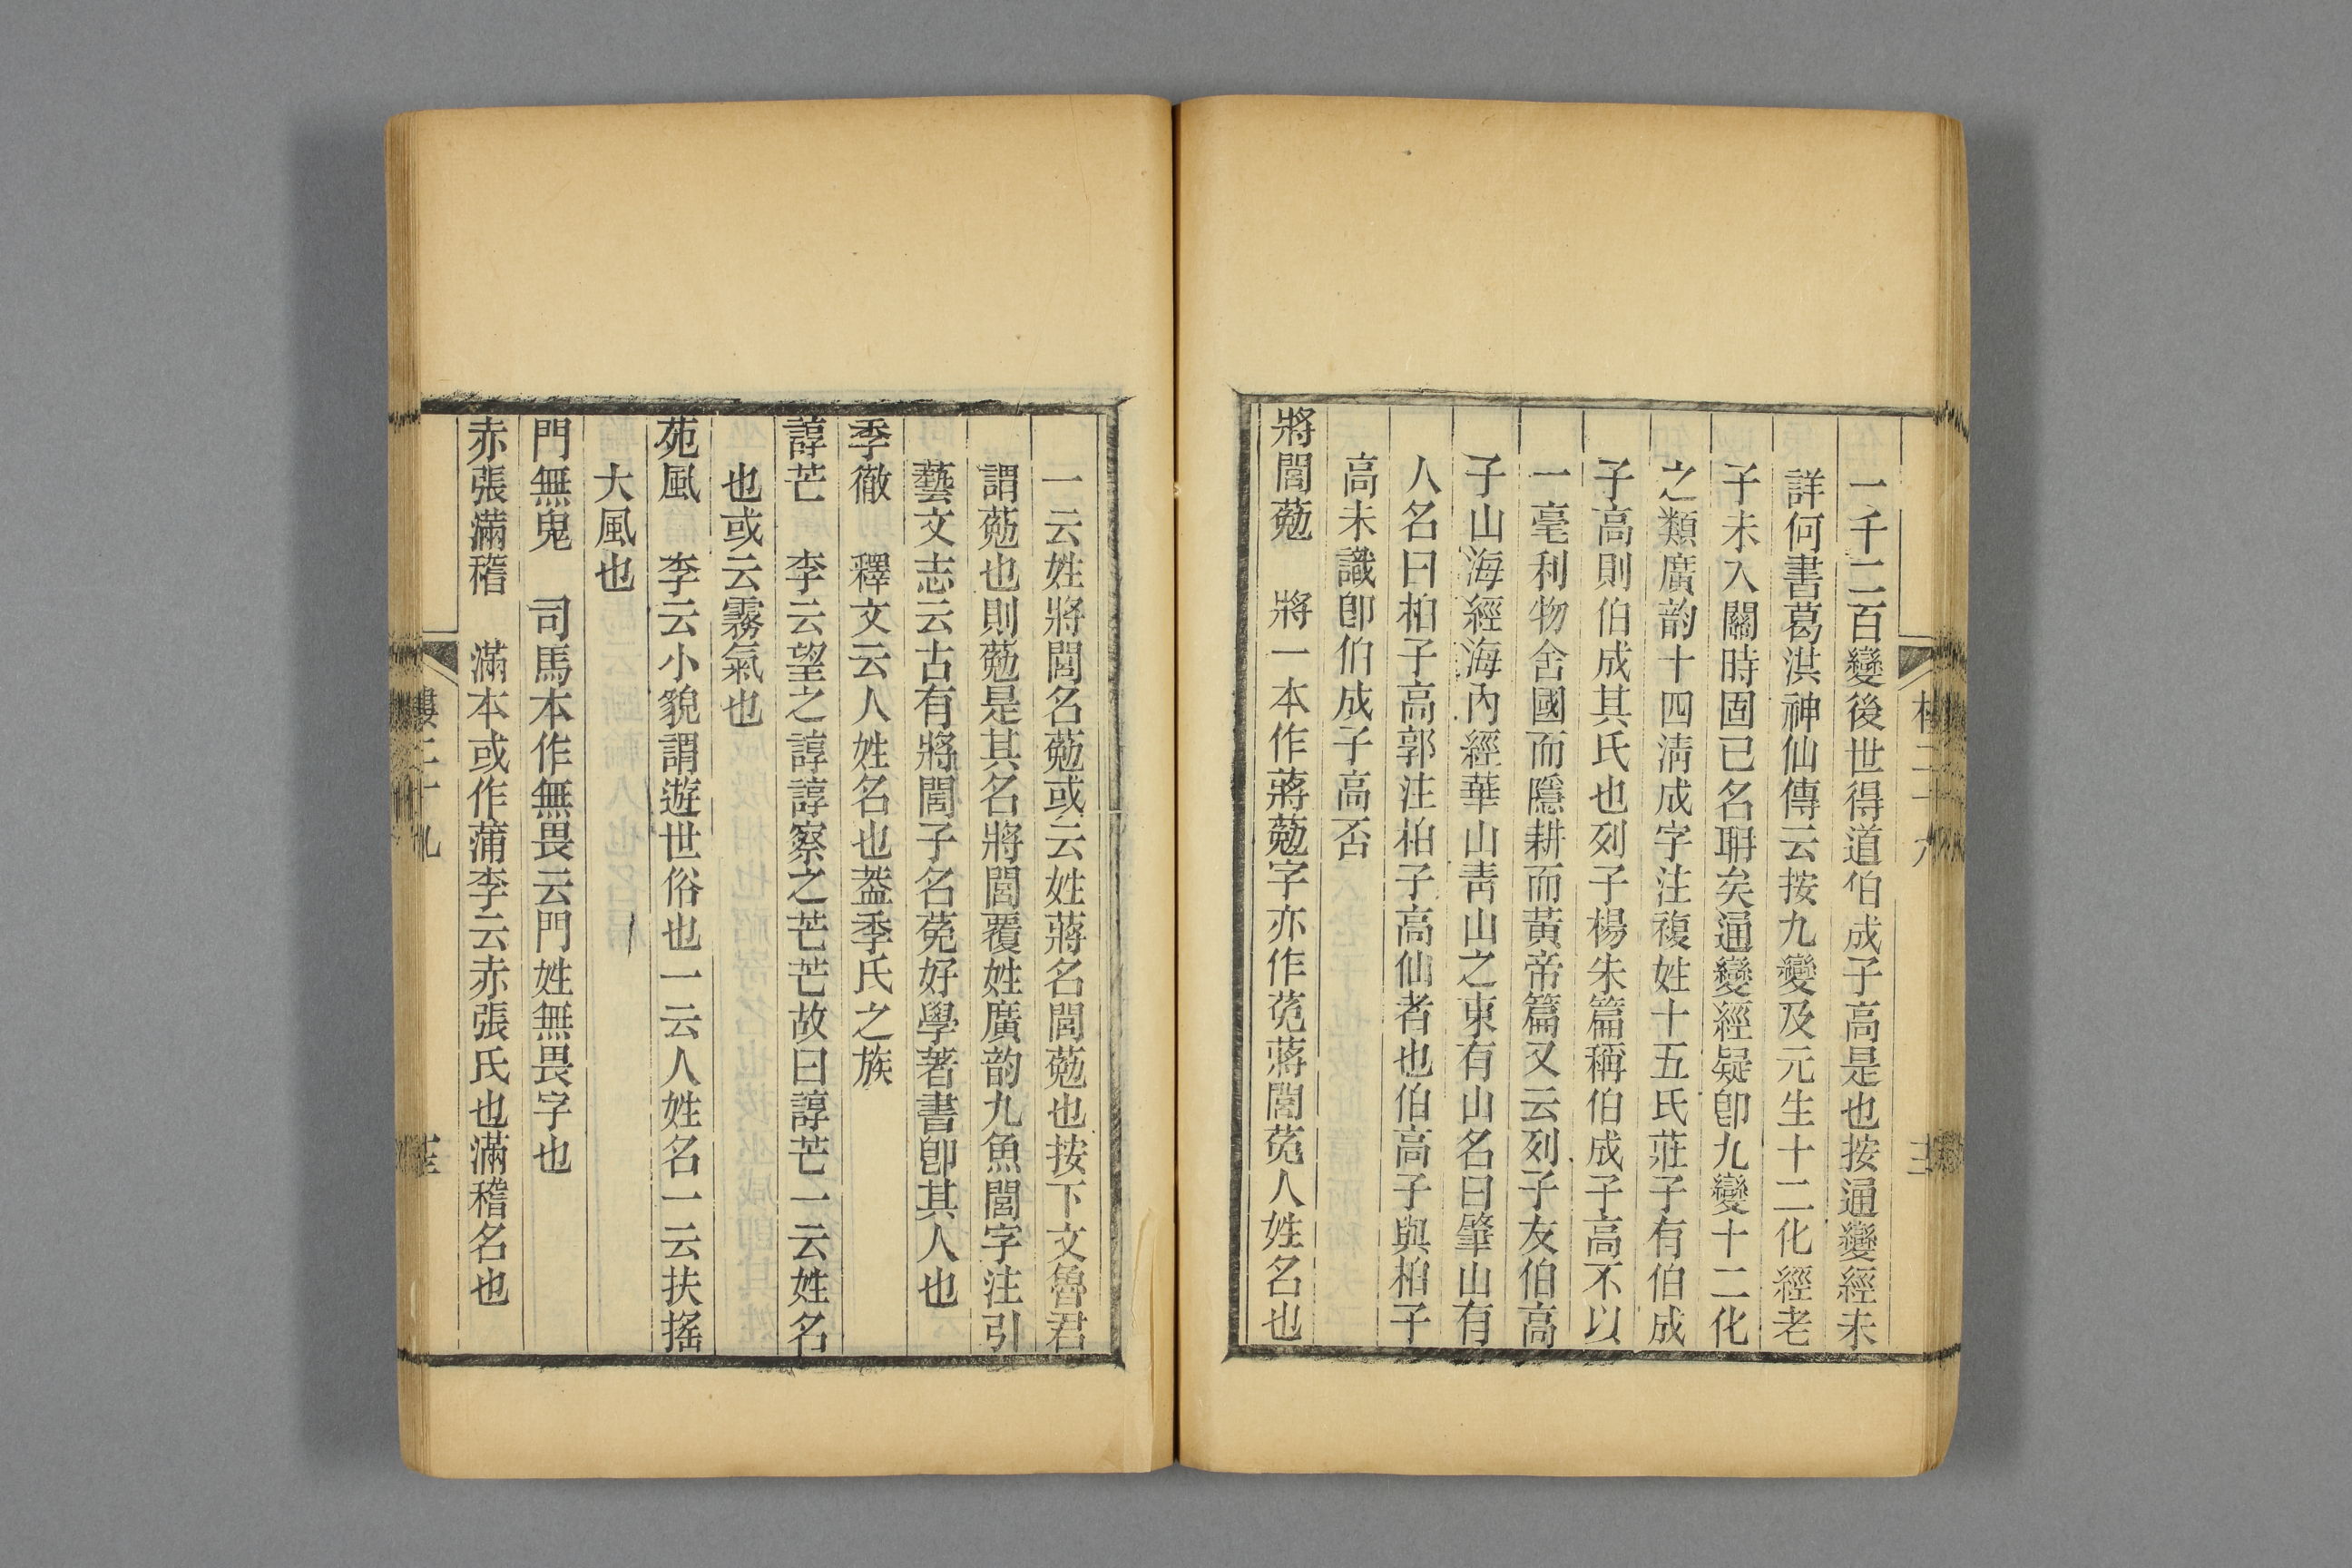 一千二百變後世得道伯成子高是也按通變經未
詳何書葛洪神仙傳云按九變及元生十二化經老
子未入關時固已名聃矣通變經疑卽九變十二化
之類廣韵十四淸成字注複姓十五氏莊子有伯成
子高則伯成其氏也列子楊朱篇稱伯成子高不以
一毫利物舍國而隱耕而黃帝篇又云列子友伯高
子山海經海內經華山靑山之東有山名曰肇山有
人名曰柏子高郭注柏子高仙者也伯高子與柏子
高未識卽伯成子高否
將閭葂　將一本作蔣葂字亦作莬蔣閭莬人姓名也
一云姓將閭名葂或云姓蔣名閭葂也按下文魯君
謂葂也則葂是其名將閭覆姓廣韵九魚閭字注引
藝文志云古有將閭子名莬好學著書卽其人也
季徹　釋文云人姓名也葢季氏之族
諄芒　李云望之諄諄察之芒芒故曰諄芒一云姓名
也或云霧氣也
苑風　李云小貌謂遊世俗也一云人姓名一云扶搖
大風也
門無鬼　司馬本作無畏云門姓無畏字也
赤張滿稽　滿本或作蒲李云赤張氏也滿稽名也
樓二十九